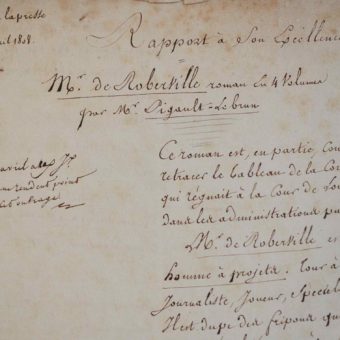 la presse
Rapport à Son Excellence
Mr. de Roberville roman en 4 Volume
par Mr. Pigault=Lebrun
rendent point
Ce roman est, en partie, con
retracer le tableau de la Co
qui régnait à la Cour de Lou
dans les administrations pu
Mr. de Roberville es
homme à projets. Tour à
Journaliste, Joueur, Spécul
Il est dupe des fripons qu